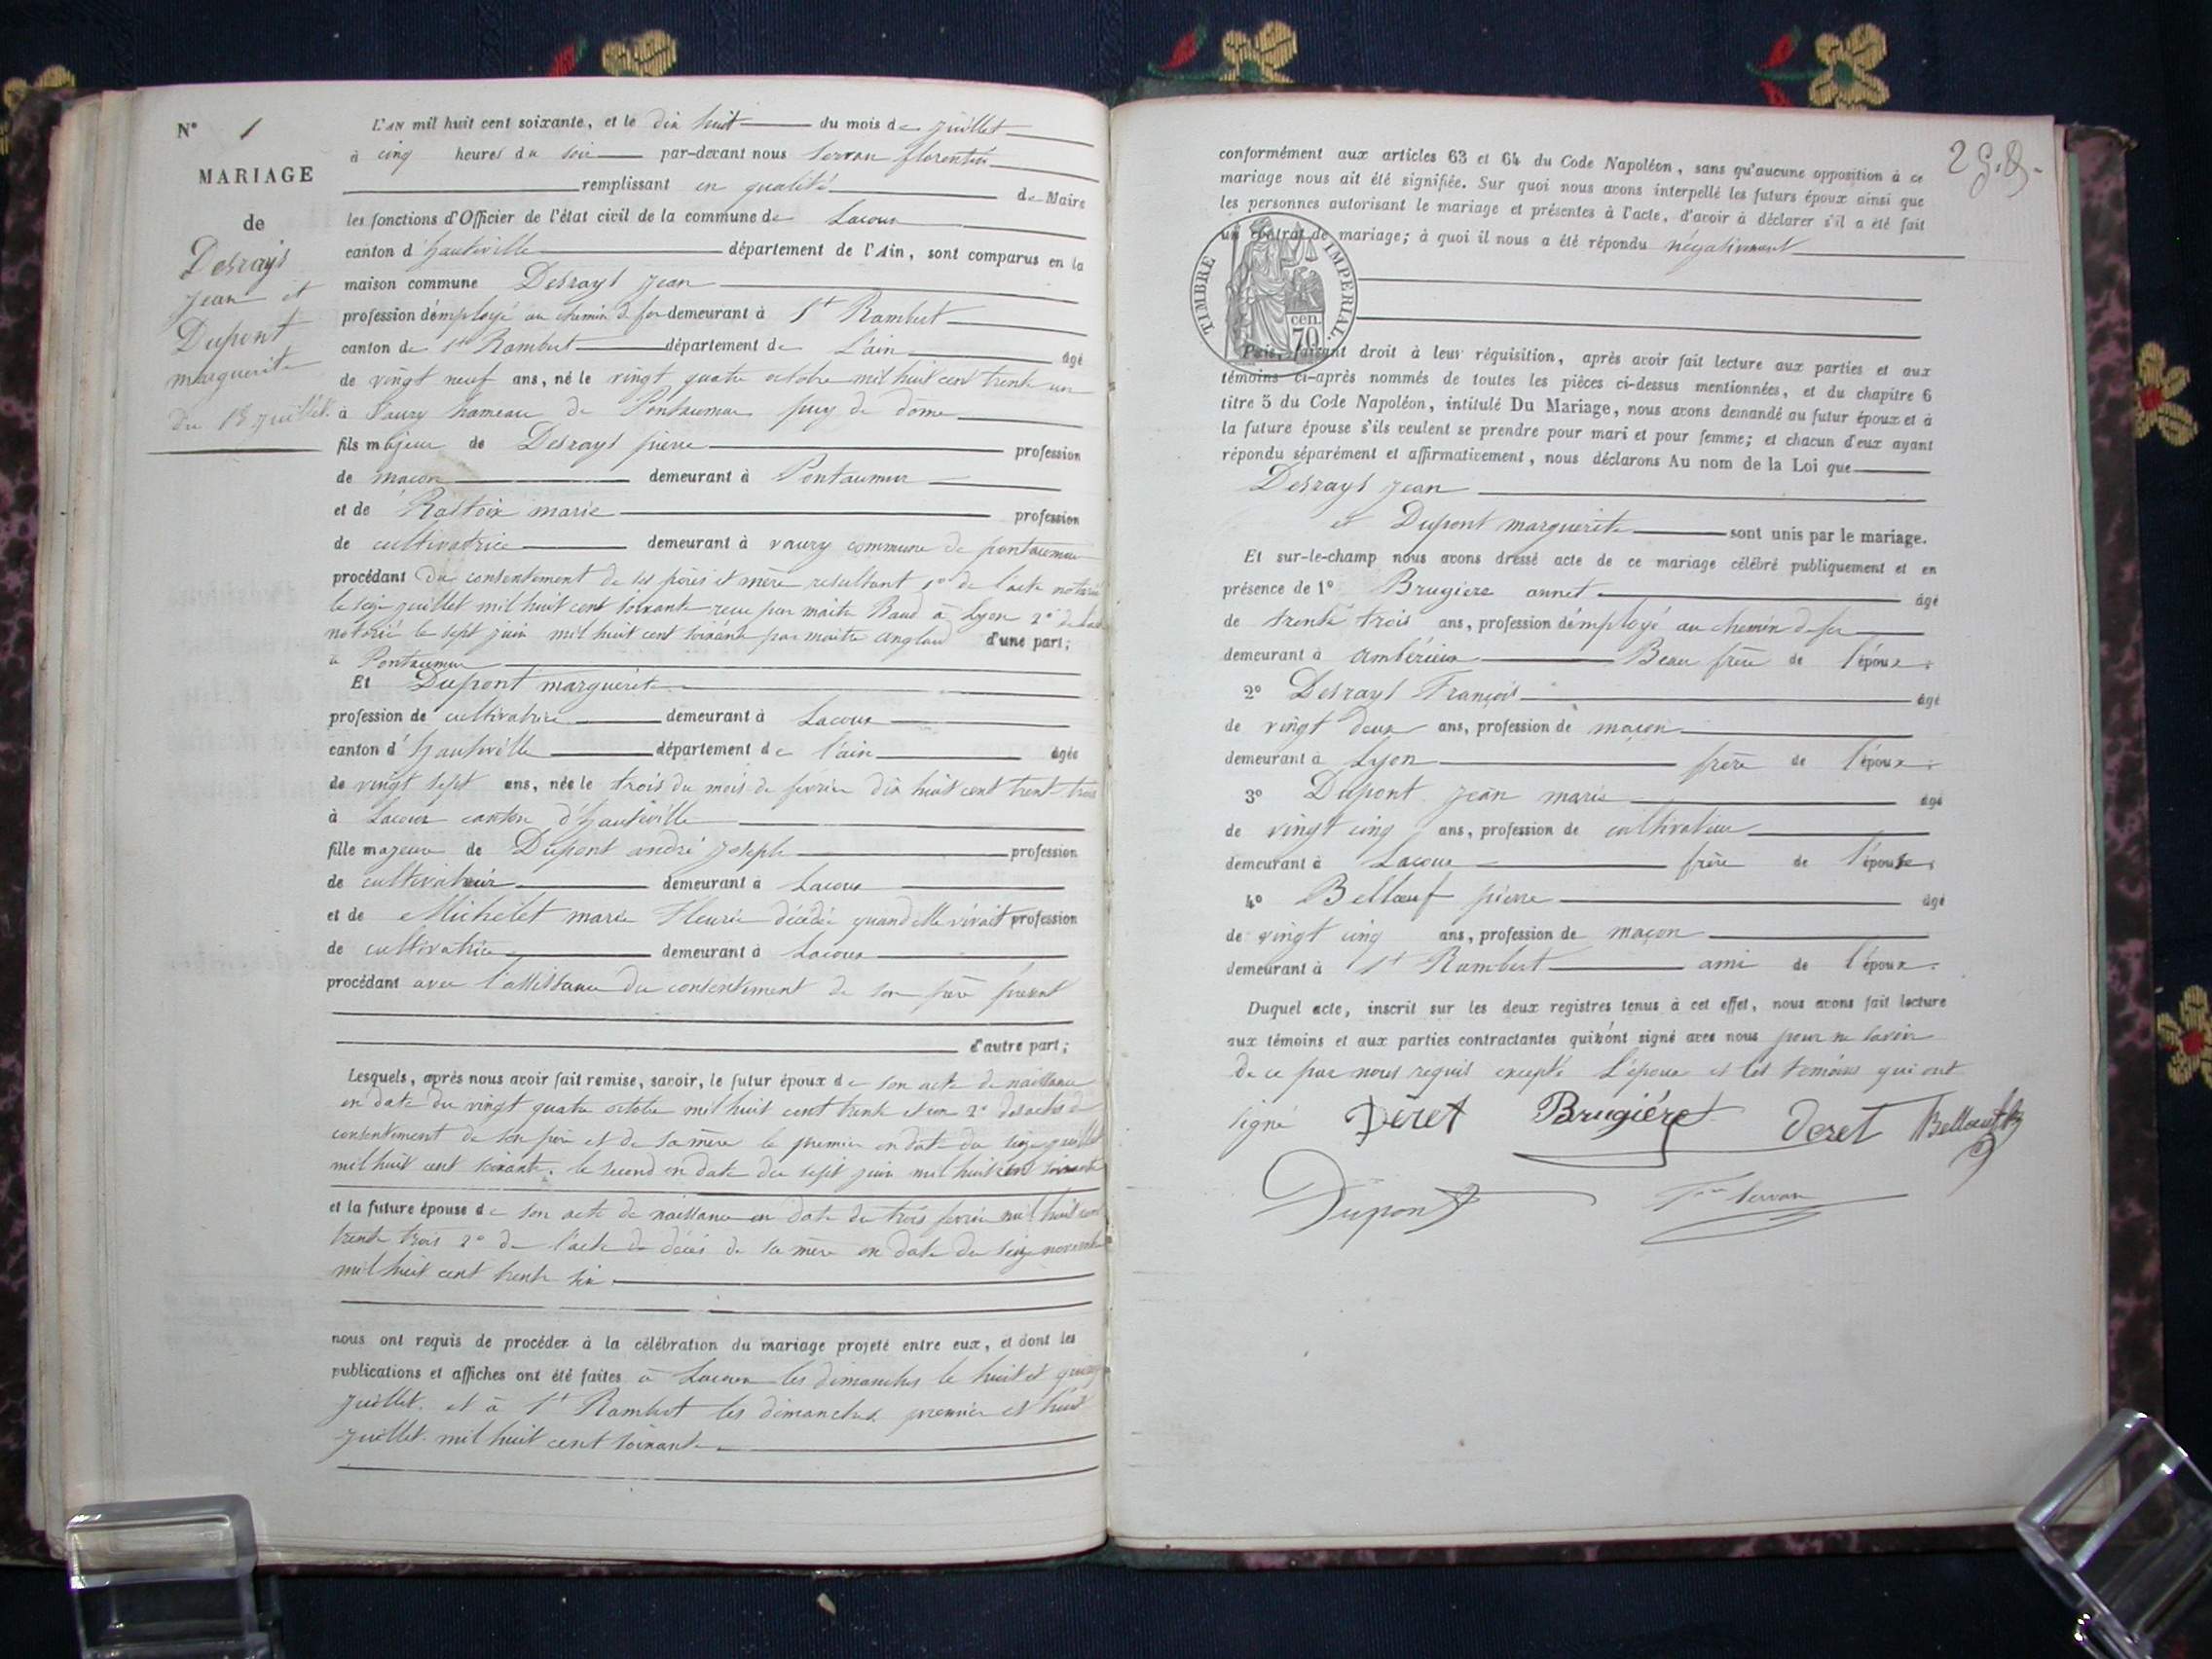 N° 1
MARIAGE
de
Desrays
Jean et
Dupont
marguerite
du 18 juillet.
L'AN mil huit cent soixante, et le dix huit du mois de juillet
à cinq heures du soir par-devant nous Servan florentin
remplissant en qualité de Maire
les fonctions d'Officier de l'état civil de la commune de Lacoux
canton d'hauteville département de l'Ain, sont comparus en la
maison commune Desrays Jean
profession d'employé au chemin de fer demeurant à St Rambert
canton de St Rambert département de L'ain âgé
de vingt neuf ans, né le vingt quatre octobre mil huit cent trente un
à hameau de Pontaumur puy de dôme
fils majeur de Desrays pierre profession
de maçon demeurant à Pontaumur
et de Rattoix marie profession
de cultivatrice demeurant à vaury commune de pontaumur
procédant du consentement de ses père et mère resultant 1° de l'acte notarié
le seize juillet mil huit cent soixante recu par maitre Baud à Lyon 2° de
notarié le sept juin mil huit cent soixante par maitre anglaud d'une part;
à Pontaumur
Et Dupont marguerite
profession de cultivatrice demeurant à Lacoux
canton d'hauteville département de l'ain âgée
de vingt sept ans, née le trois du mois de février dix huit cent trente trois
à Lacoux canton d'hauteville
fille majeure de Dupont andré joseph profession
de cultivateur demeurant à Lacoux
et de Michelet marie Fleurie décédée quand elle vivait profession
de cultivatrice demeurant à Lacoux
procédant avec l'assistance du consentement de son père présent
d'autre part;
Lesquels, après nous avoir fait remise, savoir, le futur époux de son acte de naissance
en date du vingt quatre octobre mil huit cent trente et un 2° des actes de
consentement de son père et de sa mère le premier en date du seize juillet
mil huit cent soixante. le second en date du sept juin mil huit cent soixante
et la future épouse de son acte de naissance en date du trois février mil huit cent
trente trois 2° de l'acte de décès de sa mère en date du seize novembre
mil huit cent trente six
nous ont requis de procéder à la célébration du mariage projeté entre eux, et dont les
publications et affiches ont été faites à Lacoux les dimanches le huit et quinze
juillet. et à St Rambert les dimanches premier et huit
juillet mil huit cent soixante
conformément aux articles 63 et 64 du Code Napoléon, sans qu'aucune opposition à ce
mariage nous ait été signifiée. Sur quoi nous avons interpellé les futurs époux ainsi que
les personnes autorisant le mariage et présentes à l'acte, d'avoir à déclarer s'il a été fait
un contrat de mariage; à quoi il nous a été répondu négativement
TIMBRE IMPERIAL.
cen.
70
Puis, faisant droit à leur réquisition, après avoir fait lecture aux parties et aux
témoins ci-après nommés de toutes les pièces ci-dessus mentionnées, et du chapitre 6
titre 5 du Code Napoléon, intitulé Du Mariage, nous avons demandé au futur époux et à
la future épouse s'ils veulent se prendre pour mari et pour femme; et chacun d'eux ayant
répondu séparément et affirmativement, nous déclarons Au nom de la Loi que
Desrays jean
et Dupont marguerite sont unis par le mariage.
Et sur-le-champ nous avons dressé acte de ce mariage célébré publiquement et en
présence de 1° Brugiere annet âgé
de trente trois ans, profession d'employé au chemin de fer
demeurant à ambérieux Beau frère de l'époux.
2° Desrays François âgé
de vingt deux ans, profession de maçon
demeurant à Lyon frère de l'époux.
3° Dupont jean marie âgé
de vingt cinq ans, profession de cultivateur
demeurant à Lacoux frère de l'épouse.
4° Bellœuf pierre âgé
de vingt cinq ans, profession de maçon
demeurant à St Rambert ami de l'époux.
Duquel acte, inscrit sur les deux registres tenus à cet effet, nous avons fait lecture
aux témoins et aux parties contractantes qui n'ont signé avec nous pour ne savoir
de ce par nous requis excepté l'époux et les témoins qui ont
signé Déret Brugière deret Bellœuf
Dupont Servan